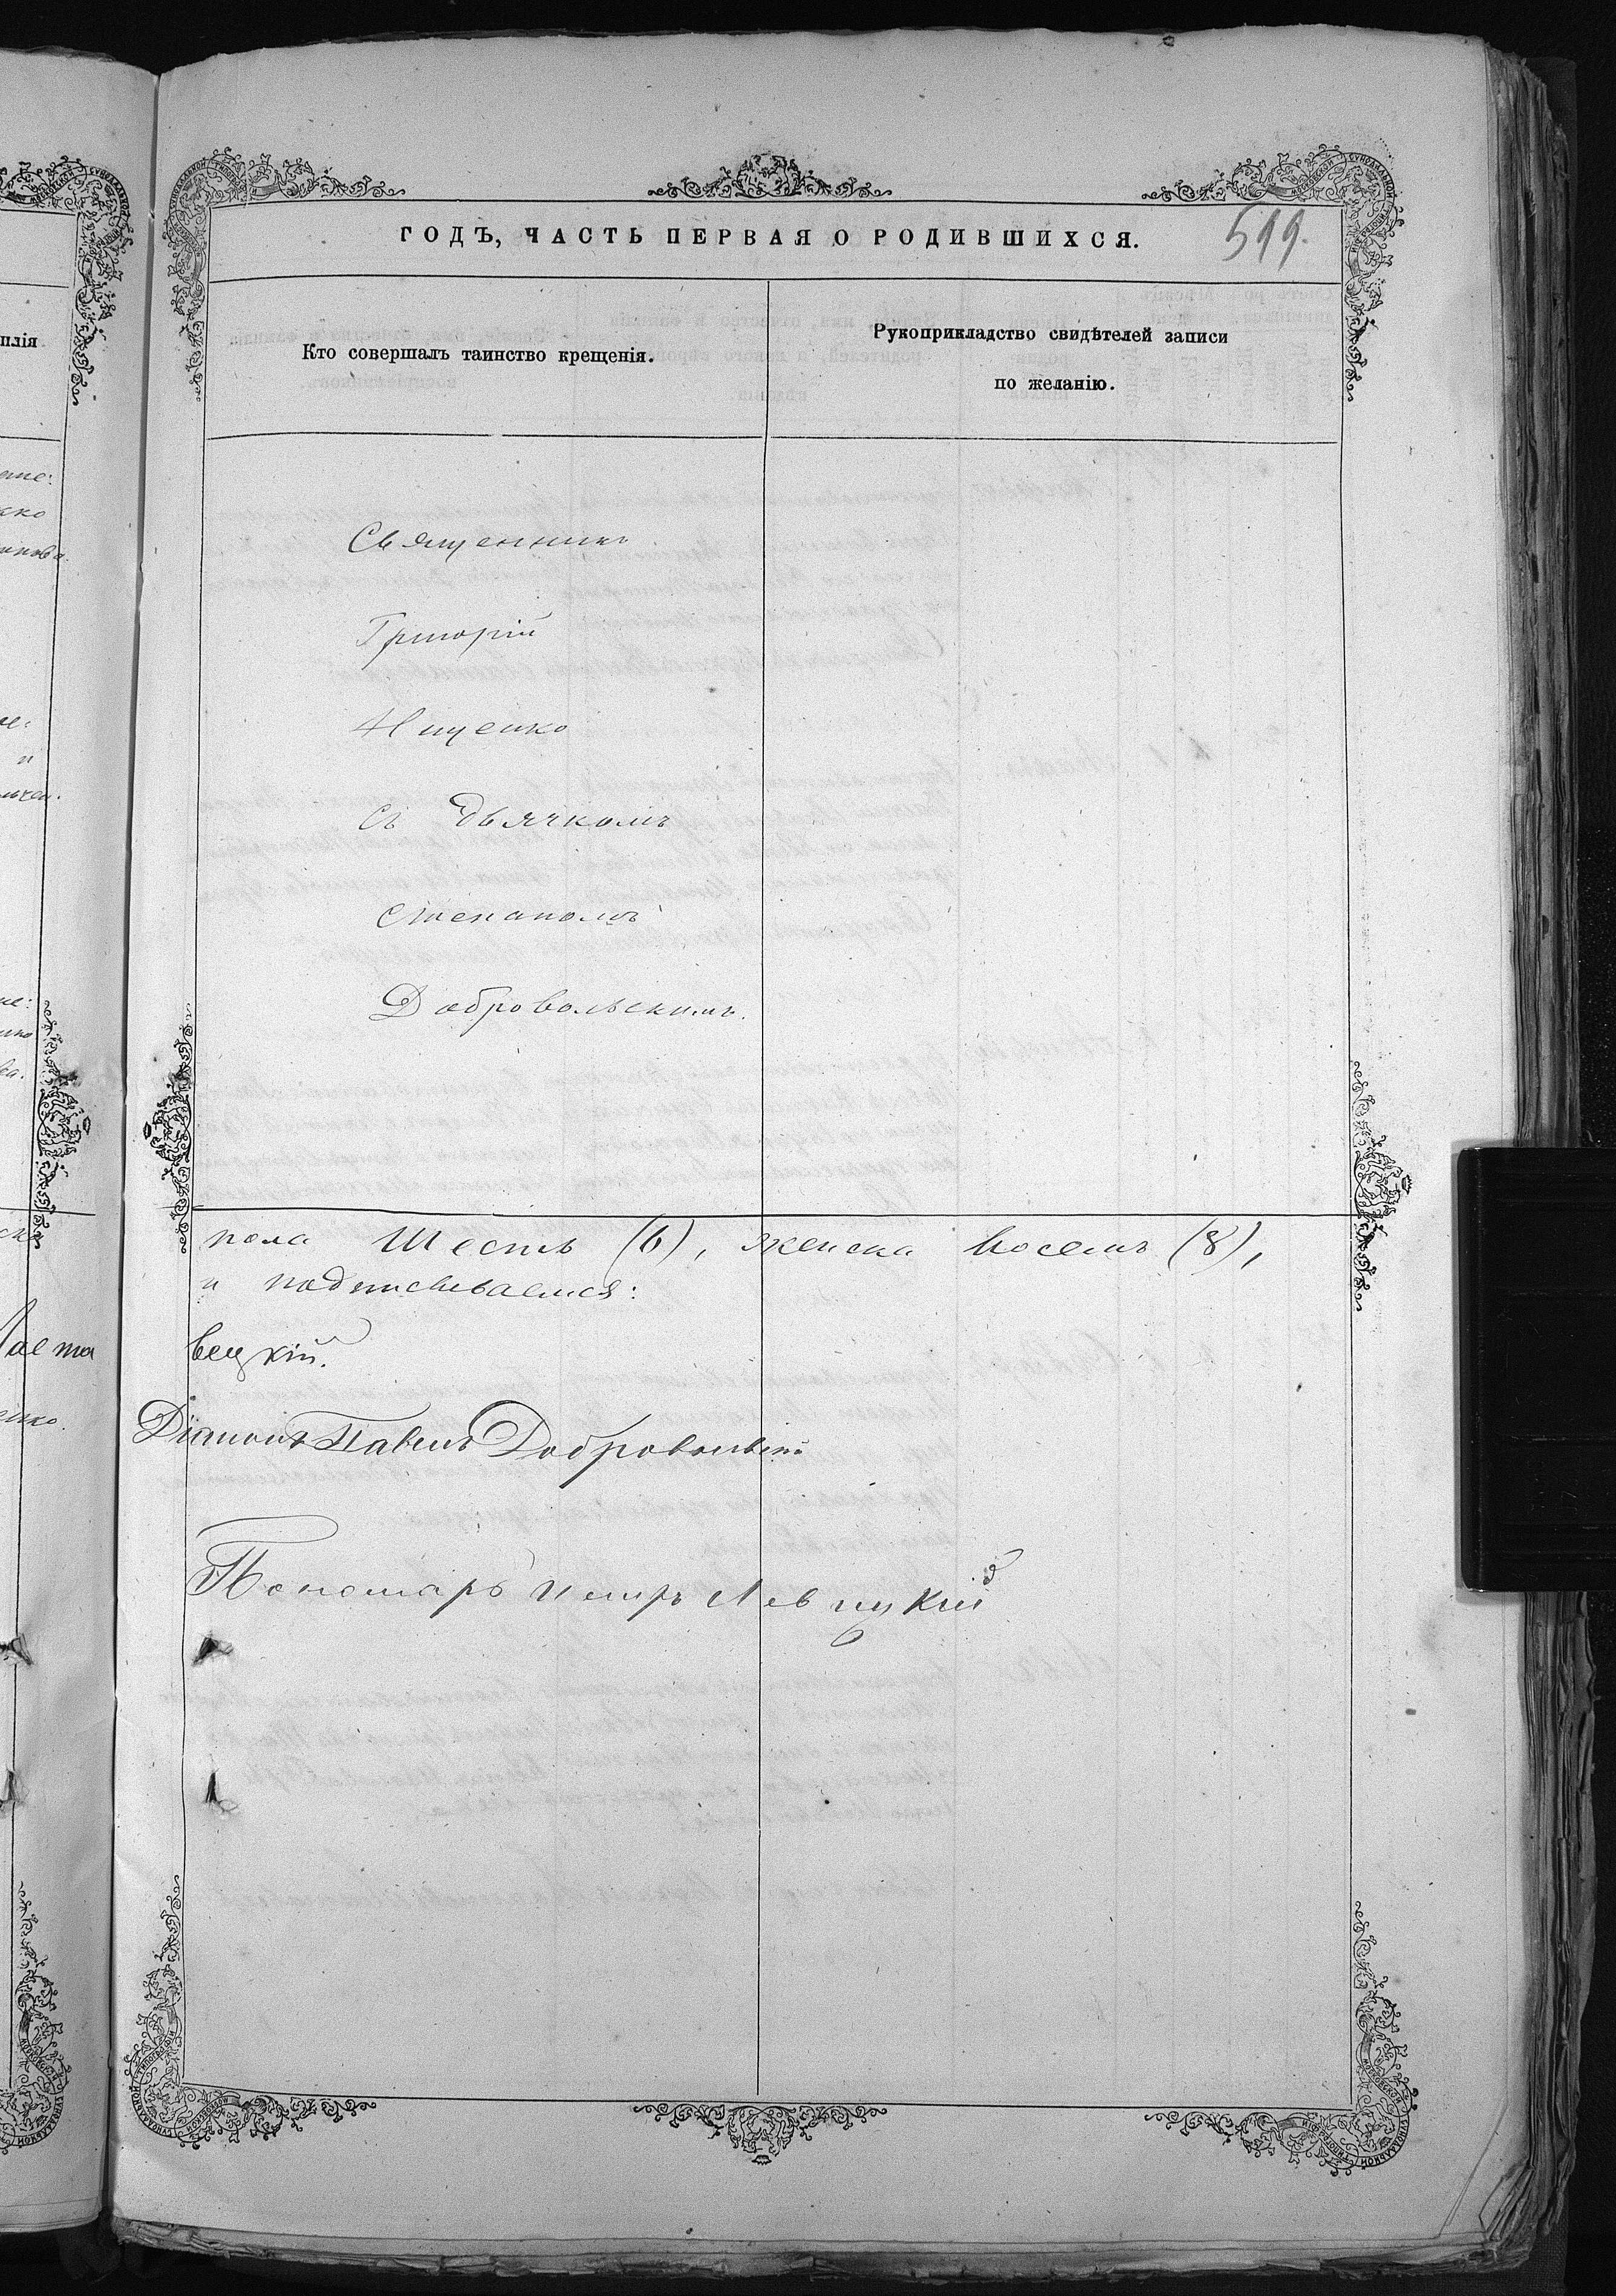 ГОДЪ, ЧАСТЬ ПЕРВАЯ О РОДИВШИХСЯ.
599.
Кто совершалъ таинство крещенія.
Рукоприкладство свидѣтелей записи
по желанію.
Священникъ
Григорій
Ищенко
съ дьячкомъ
Степаномъ
Добровольскимъ.
пола шесть (6), женска восемь (8),
и подписываемся:
вецкій.
Діаконъ Павелъ Добровольскій
Пономарь Петръ Левицкій